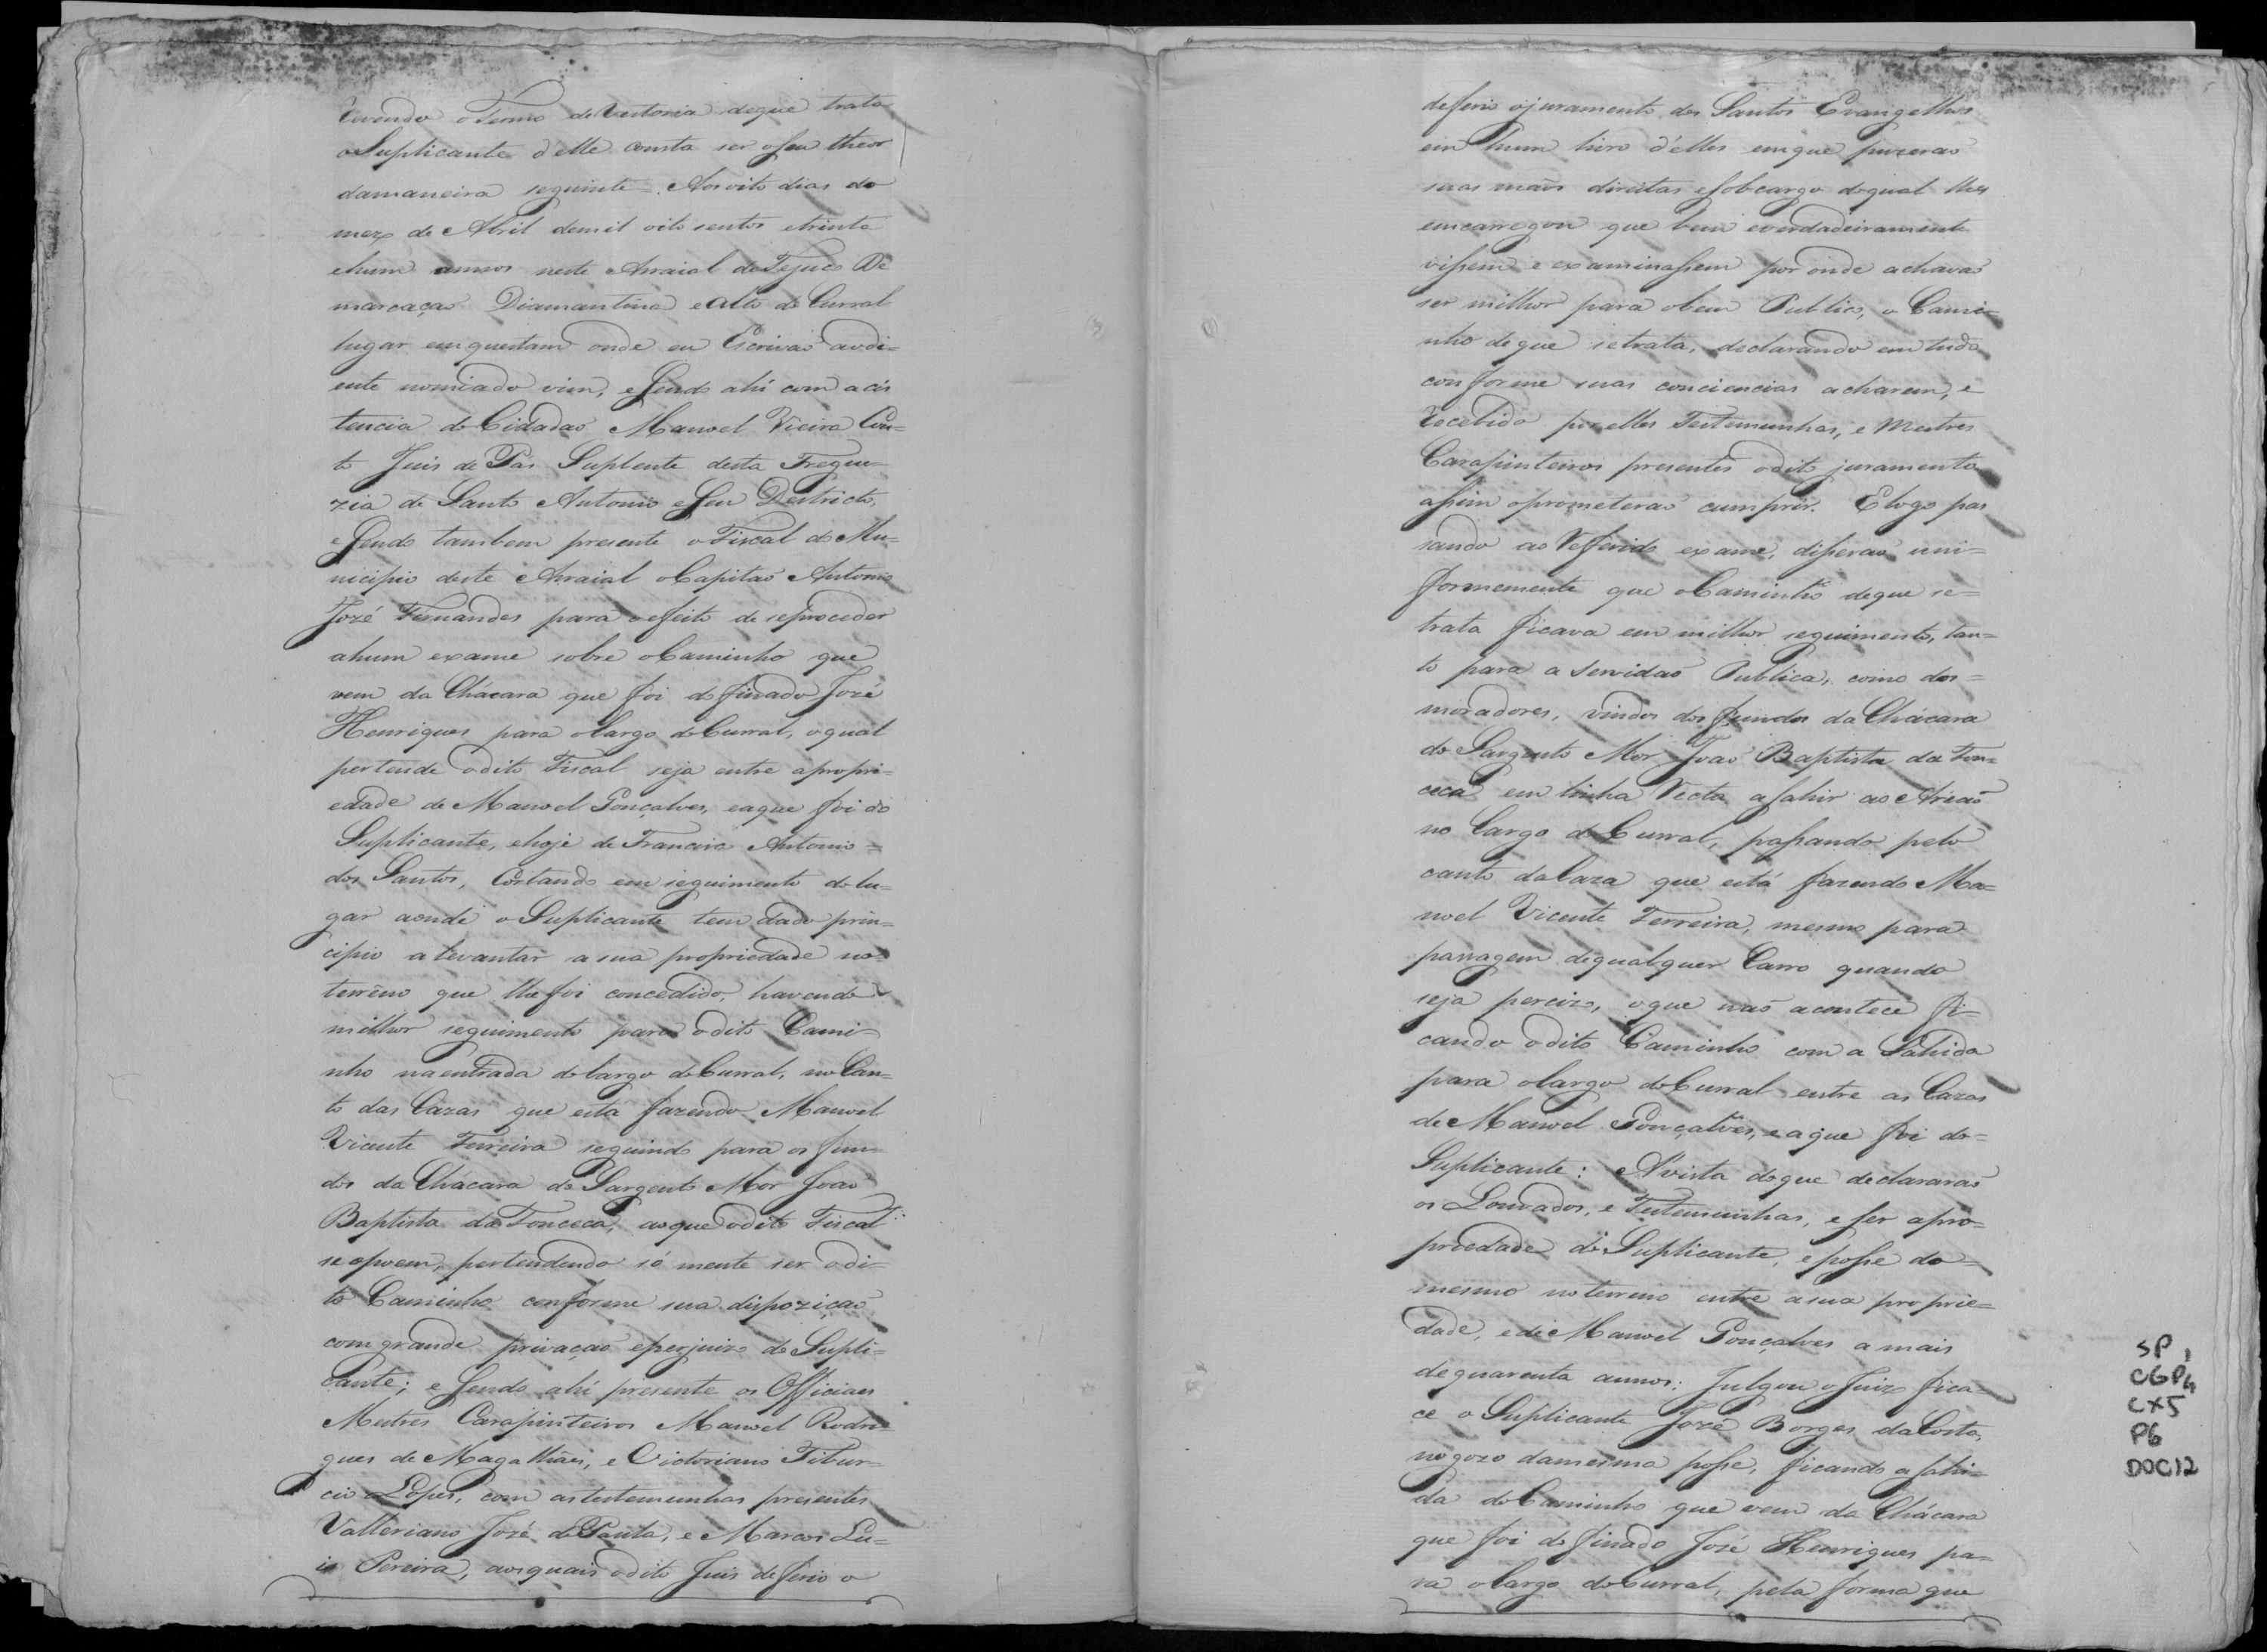 revendo o Termo de Vestoria deque trata
o Suplicante d'elle consta ser o seu theor
damaneira seguinte = Aos oito dias do
mez de Abril demil oito sentos etrinta
ehum annos neste Arraial do Tejuco De
marcação Diamantina e Alto do Curral
lugar emquestam onde eu Escrivão audi-
ente nomiado vim, e sendo ahi com acis
tencia do Cidadão Manoel Vieira Cou-
to Juis de Pás Suplente desta Fregue-
zia de Santo Antonio e seu Destricto,
e sendo tambem presente o Fiscal do Mu-
nicipio deste Arraial o Capitão Antonio
Jozé Fernandes para o effeito de seproceder
ahum exame sobre o Caminho que
vem da Chácara que foi do finado Jozé
Henriques para o largo do Curral, oqual
pertende odito Fiscal seja entre apropri-
edade de Manoel Gonçalves, eaque foi do
Suplicante, ehoje de Francisco Antonio =
dos Santos, Cortando em seguimento do lu-
gar aonde o Suplicante tem dado prin-
cipio alevantar a sua propriedade no
terreno que lhe foi concedido, havendo
milhor seguimento para odito Cami-
nho naentrada do largo do Curral, no Can-
to das Cazas que está fazendo Manoel
Vicente Ferreira seguindo para os fun-
dos da Chácara do Sargento Mor João
Baptista da Fonceca, aoque odito Fiscal
se opoem, pertendendo só mente ser odi-
to Caminho conforme sua dispozição
com grande privação eperjuizo do Supli-
cante; e sendo ahi presente os Officiaes
Mestres Carapinteiros Manoel Rodri-
gues de Magalhães, e Victoriano Tibur-
cio Lopes, com astestemunhas presentes
Valleriano Jozé de Panta, e Marcos Lu-
is Pereira, aosquais odito Juis deferio o
deferio ojuramento dos Santos Evangelhos
em hum livro d'elles emque puzerão
suas mãos direitas esobcargo doqual lhes
emcarregou que bem everdadeiramente
vissem e examinassem por onde achavão
ser milhor para obem Publico, o Cami-
nho deque setrata, declarando em tudo
conforme suas conciencias acharem, e
recebido por elles Testemunhas, e Mestres
Carapinteiros presentes odito juramento
assim oprometerão cumprir. E logo pas
sando ao refferido exame, disserão uni-
formemente que o Caminho deque se-
trata ficava em milhor seguimento, tan-
to para a servidão Publica, como dos =
moradores, vindos dos fundos da Chácara
do Sargento Mor João Baptista da Fon-
ceca em linha recta asahir ao Arião
no largo do Curral, passando pelo
canto da Caza que está fazendo Ma-
noel Vicente Ferreira, mesmo para
passagem dequalquer Carro quando
seja percizo, oque não acontece fi-
cando odito Caminho com a Sahida
para olargo do Curral entre as Cazas
de Manoel Gonçalves, eaque foi do =
Suplicante: A vista doque declararão
os Louvados, e Testemunhas, e ser apro-
priedade do Suplicante, eposse do
mesmo noterreno entre asua proprie-
dade, ede Manoel Gonçalves a mais
dequarenta annos: Julgou o Juizo fica-
ce o Suplicante Jozé Borges da Costa,
nogozo damesma posse, ficando asahi-
da do Caminho que vem da Chácara
que foi do finado José Henriques pa-
ra olargo do Curral, pela forma que
SP
CGP4
CX5
P6
DOC12